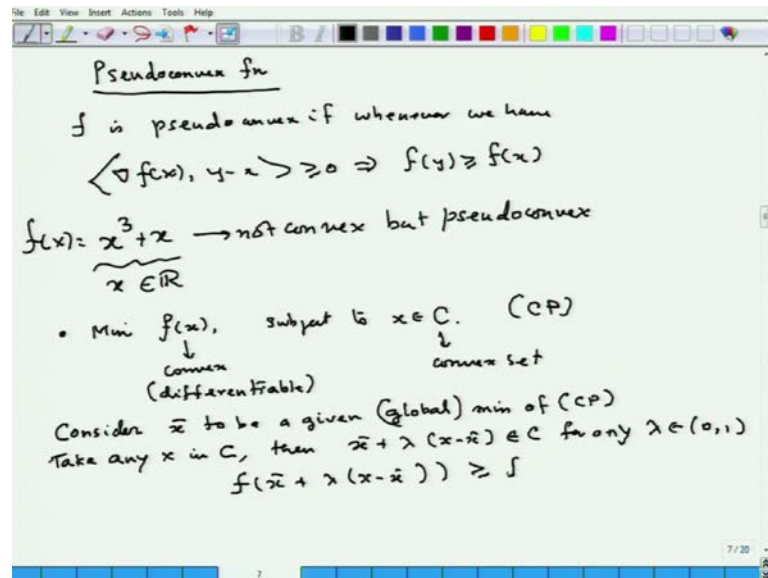 File Edit View Insert Actions Tools Help
Pseudoconvex fn
f is pseudoconvex if whenever we have
<∇f(x), y-x> ≥ 0 ⇒ f(y) ≥ f(x)
f(x) = x³+x → not convex but pseudoconvex
x ∈ ℝ
• Min f(x), subject to x ∈ C. (CP)
↓ ↓
convex convex set
(differentiable)
Consider x̄ to be a given (global) min of (CP)
Take any x in C, then x̄ + λ(x-x̄) ∈ C for any λ ∈ (0,1)
f(x̄ + λ(x-x̄)) ≥ f
7/20
7